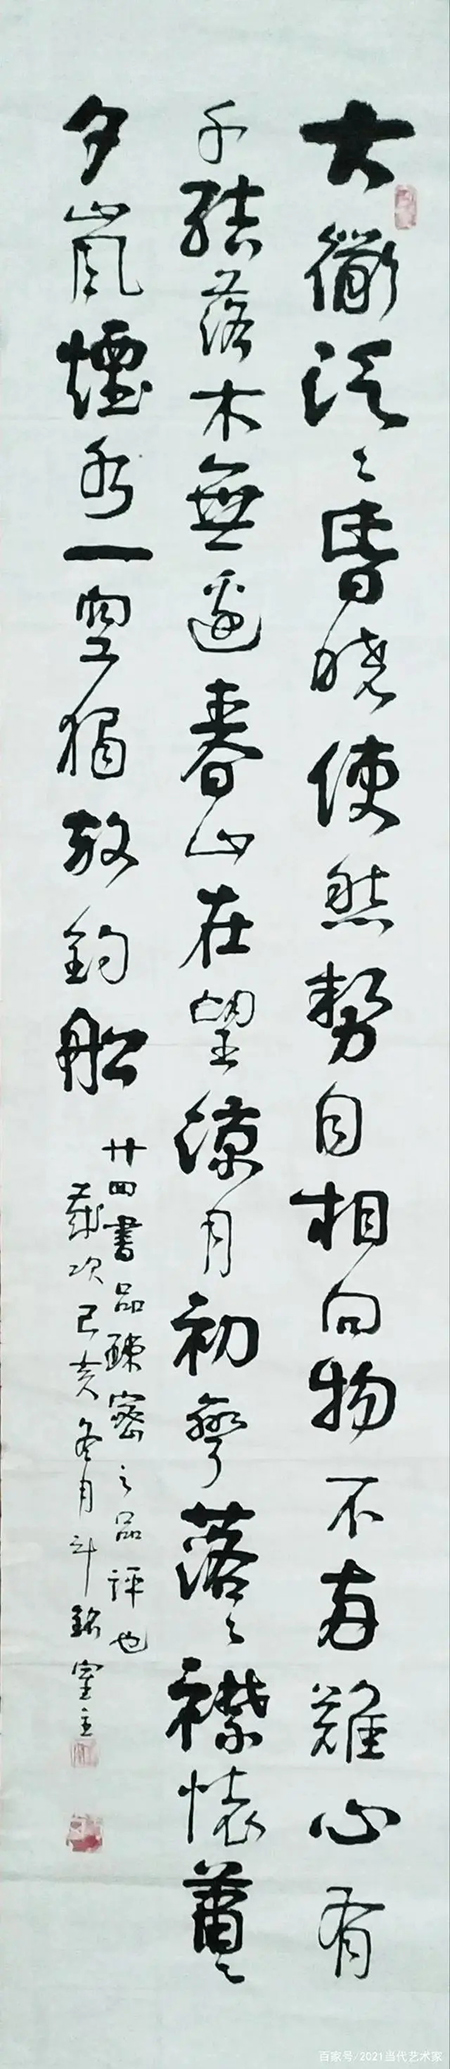 大泛〻昏曉使然勢自相向物不難心有
千結落木無邊春山在望涼月初彎落〻襟懷蕭〻
夕嵐煙水一空獨放釣船
廿四書品疎密之品評也
歲次己亥冬月斗銘室主
百家号/2021当代艺术家